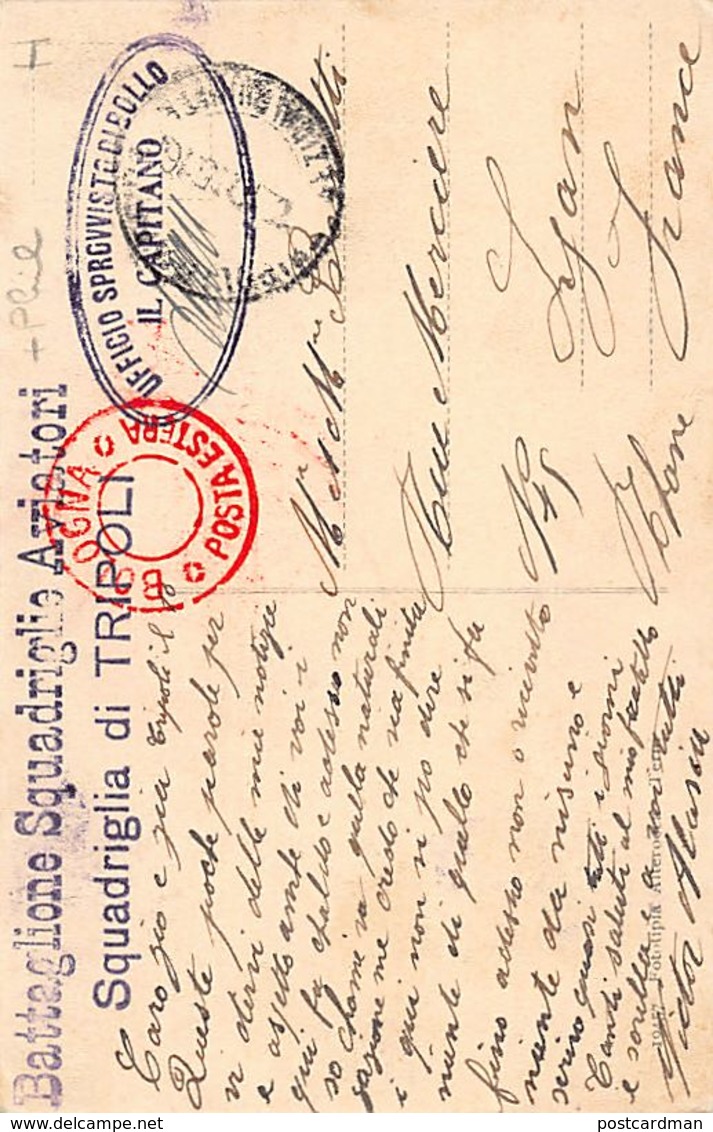 Battaglione Squadriglie Aviatori
Squadriglia di TRIPOLI
UFFICIO SPROVVISTO DI BOLLO
IL CAPITANO
POSTA ESTERA
OGNA
+ Phil
H
Tripoli il
Caro zio e zia
Queste poche parole per
vi dervi delle mie notizie
e aspetto ante di voi i
qui fa chaldo e adesso non
so chome va quella naturali
zazione me credo che sia finita
i qui non si po dire
niente di quello che si fa
fino adesso non o ricevuto
niente da nisuno e
scrivo quasi tutti i giorni
Tanti saluti al mio fratello
e sorella e a voi tutti
Victor
Mr et Mme
Rue Merciere
No 45
Lyon
Rhone
France
Fototipia
postcardman